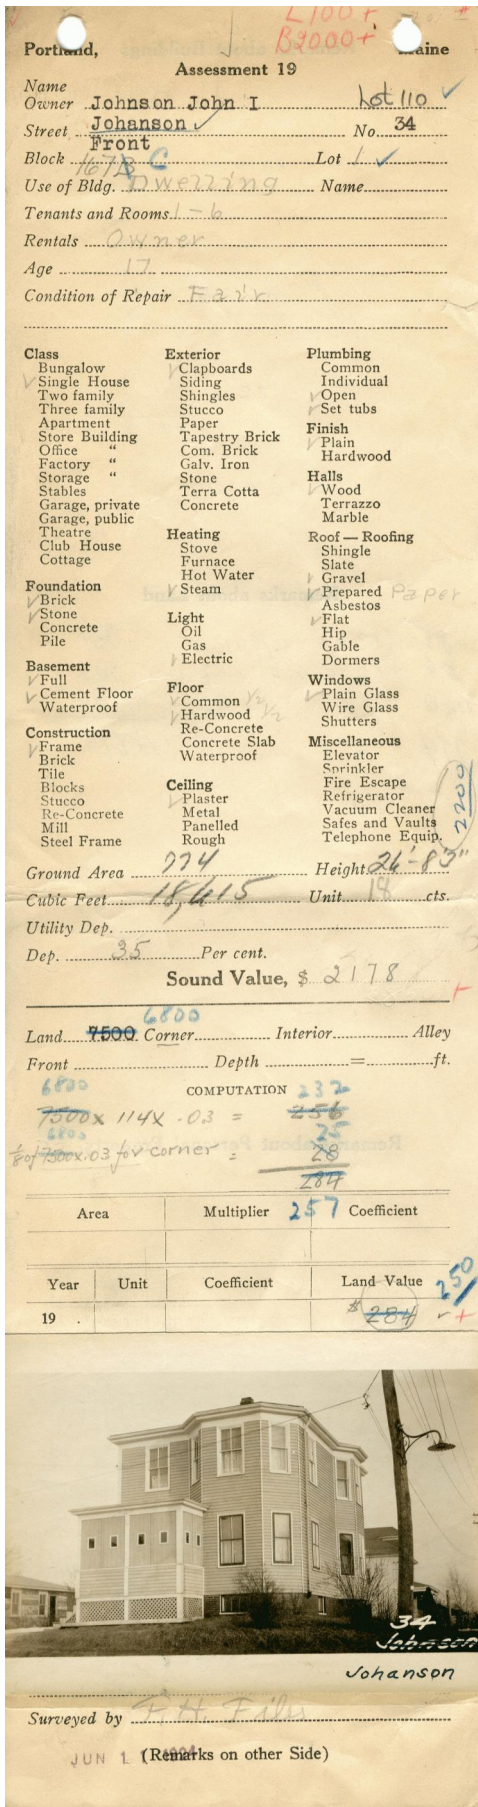 L100+
B2000+
Portland, Maine
Assessment 19
Name
Owner Johnson John I Lot 110 ✓
Street Johanson ✓ No. 34
Front
Block 167B C Lot 1 ✓
Use of Bldg. Dwelling Name
Tenants and Rooms 1-6
Rentals Owner
Age 17
Condition of Repair Fair
Class
Bungalow
✓ Single House
Two family
Three family
Apartment
Store Building
Office "
Factory "
Storage "
Stables
Garage, private
Garage, public
Theatre
Club House
Cottage
Foundation
✓ Brick
✓ Stone
Concrete
Pile
Basement
✓ Full
✓ Cement Floor
Waterproof
Construction
✓ Frame
Brick
Tile
Blocks
Stucco
Re-Concrete
Mill
Steel Frame
Exterior
✓ Clapboards
Siding
Shingles
Stucco
Paper
Tapestry Brick
Com. Brick
Galv. Iron
Stone
Terra Cotta
Concrete
Heating
Stove
Furnace
Hot Water
✓ Steam
Light
Oil
Gas
✓ Electric
Floor
✓ Common 1/2
✓ Hardwood 1/2
Re-Concrete
Concrete Slab
Waterproof
Ceiling
✓ Plaster
Metal
Panelled
Rough
Plumbing
Common
Individual
✓ Open
✓ Set tubs
Finish
✓ Plain
Hardwood
Halls
✓ Wood
Terrazzo
Marble
Roof — Roofing
Shingle
Slate
✓ Gravel
✓ Prepared Paper
Asbestos
✓ Flat
Hip
Gable
Dormers
Windows
✓ Plain Glass
Wire Glass
Shutters
Miscellaneous
Elevator
Sprinkler
Fire Escape
Refrigerator
Vacuum Cleaner
Safes and Vaults
Telephone Equip.
2200
Ground Area 774 Height
Cubic Feet 18,415 Unit 18 cts.
Utility Dep.
Dep. 35 Per cent.
Sound Value, $ 2178
+
6800
Land 7500 Corner Interior Alley
Front Depth = ft.
COMPUTATION
6800 232
7500 x 114 x .03 = 256
6800 25
1/8 of 7500 x .03 for corner = 28
284
Area Multiplier 257 Coefficient
Year Unit Coefficient Land Value 250
19 . $ 284 ✓ +
34
Johnson
Johanson
Surveyed by F. H. Files
JUN 1
(Remarks on other Side)